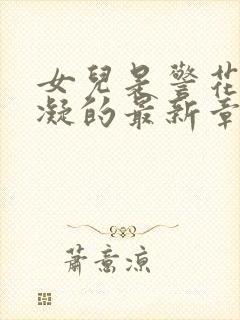 女兒是警花
凝的最新章
蕭意涼